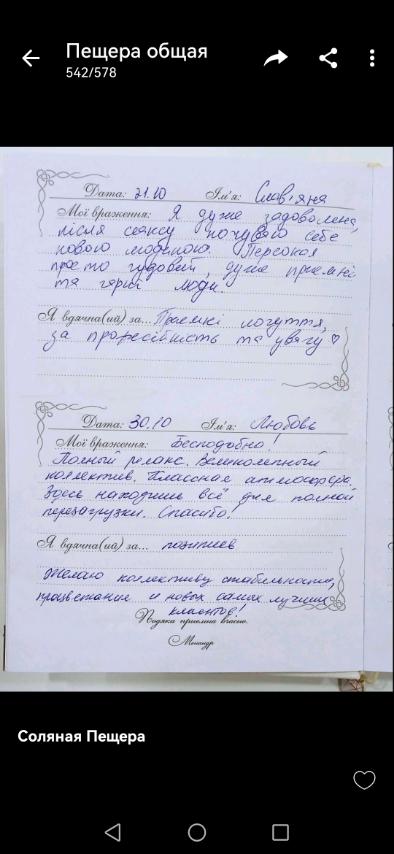 Пещера общая
542/578
Дата: 21.10 Ім'я: Слав'яна
Мої враження: Я дуже задоволена,
після сеансу почуваю себе
новою людиною. Персонал
просто чудовий, дуже приємні
та гарні люди.
Я вдячна(ий) за... Приємні почуття,
за та увагу ♡
Дата: 30.10 Ім'я: Любовь
Мої враження: Бесподобно!
Полный релакс. Великолепный
коллектив. Классная атмосфера.
Здесь находишь всё для полной
перезагрузки. Спасибо!
Я вдячна(ий) за... позитив
Желаю коллективу стабильности,
процветания и новых самых лучших
клиентов!
Подяка приємна вчасно.
Менандр
Соляная Пещера